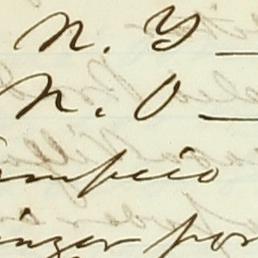 N. Y —
N. O —
ampico
inger for